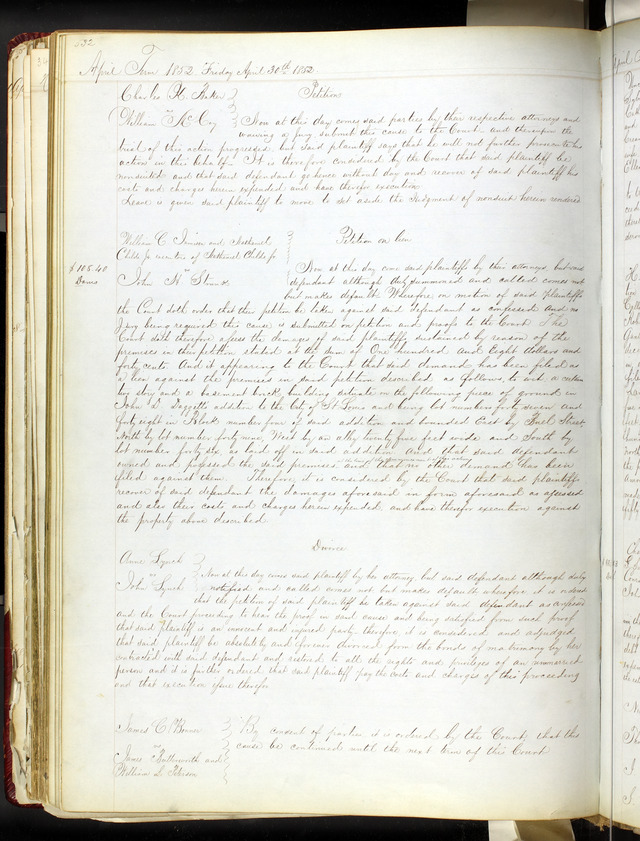 232
April Term 1852. Friday April 30th 1852.
Charles H.
Petition
William Mc Coy
Now at this day comes said parties by their respective attorneys and
waiving a jury submit this cause to the Court and thereupon the
trial of this action progressed but said plaintiff says that he will not further prosecute his
action in this behalf. It is therefore considered by the Court that said plaintiff be
nonsuited and that said defendant go hence without day and recover of said plaintiff his
costs and charges herein expended and have therefor execution
Leave is given said plaintiff to move to set aside the Judgment of nonsuit herein rendered
William C. and Nathaniel
Childs Jr. of Nathaniel Childs Jr
Petition on lien
$108.40
Dams
vs
John H
Now at this day come said plaintiffs by their attorneys but said
defendant although duly summoned and called comes not
but makes default Wherefore on motion of said plaintiffs
the Court doth order that their petition be taken against said defendant as confessed And no
Jury being required this cause is submitted on petition and proofs to the Court. The
Court doth therefore assess the damages of said plaintiffs sustained by reason of the
premises in their petition stated at the sum of One hundred and Eight dollars and
forty cents. And it appearing to the Court that said demand has been filed as
a lien against the premises in said petition described as follows, to wit: a certain
two story and a basement brick building situate on the following piece of ground in
John D. Daggetts addition to the City of St Louis and being lot numbers forty seven and
forty eight in Block number four of said addition and bounded East by Street
North by lot number forty nine, West by an alley twenty five feet wide and South by
lot number forty six as laid off in said addition And that said defendant
owned and possessed the said premises and that no other demand has been
filed against them. Therefore it is considered by the Court that said plaintiffs
recover of said defendant the damages aforesaid in form aforesaid as assessed
and also their costs and charges herein expended and have therefor execution against
the property above described
Divorce
Anne Lynch
vs
John Lynch
Now at this day comes said plaintiff by her attorney, but said defendant although duly
notified and called comes not but makes default wherefore it is ordered
that the petition of said plaintiff be taken against said defendant as confessed
and the Court proceeding to hear the proof in said cause and being satisfied from such proof
that said plaintiff is an innocent and injured party therefore, it is considered and adjudged
that said plaintiff be absolutely and forever divorced from the bonds of matrimony by her
contracted with said defendant and restored to all the rights and privileges of an unmarried
person and it is further ordered that said plaintiff pay the costs and charges of this proceeding
and that execution issue therefor
James C
vs
James Butterworth and
William S. Peterson
By consent of parties it is ordered by the Court that this
cause be continued until the next term of this Court